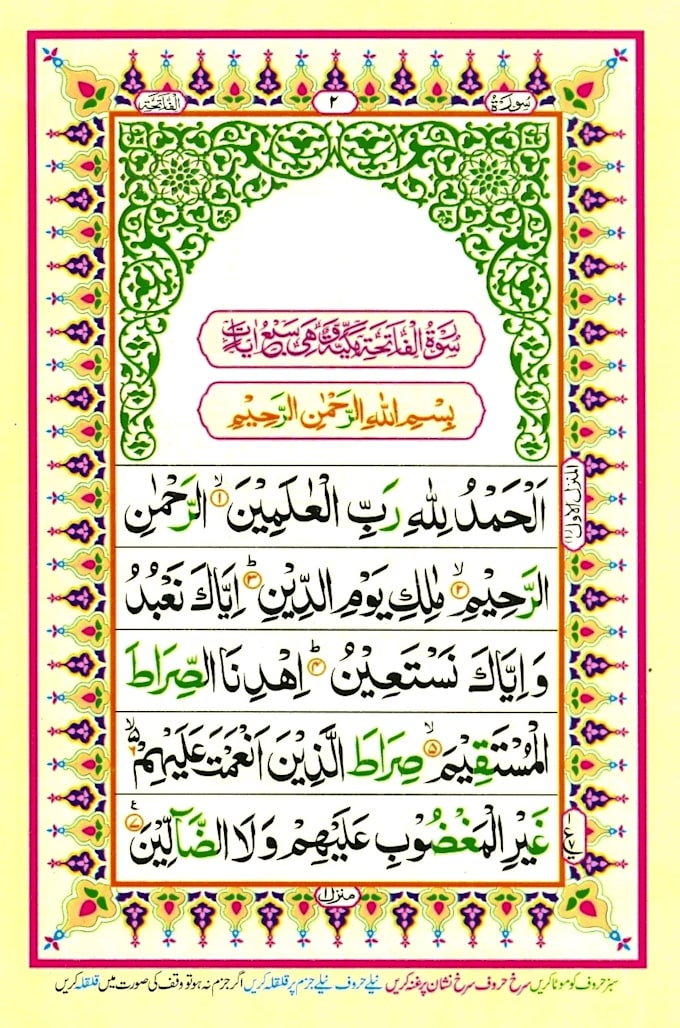 سورة
٢
الفاتحة
سُوْرَةُ الْفَاتِحَةِ مَكِّيَّةٌ وَّهِیَ سَبْعُ اٰیَاتٍ
بِسْمِ اللّٰهِ الرَّحْمٰنِ الرَّحِیْمِ
اَلْحَمْدُ لِلّٰهِ رَبِّ الْعٰلَمِیْنَ ۙ﴿۱﴾ الرَّحْمٰنِ
الرَّحِیْمِ ۙ﴿۲﴾ مٰلِكِ یَوْمِ الدِّیْنِ ؕ﴿۳﴾ اِیَّاكَ نَعْبُدُ
وَ اِیَّاكَ نَسْتَعِیْنُ ؕ﴿۴﴾ اِهْدِنَا الصِّرَاطَ
الْمُسْتَقِیْمَ ۙ﴿۵﴾ صِرَاطَ الَّذِیْنَ اَنْعَمْتَ عَلَیْهِمْ ۙ۬﴿۶﴾
غَیْرِ الْمَغْضُوْبِ عَلَیْهِمْ وَ لَا الضَّآلِّیْنَ ﴿۷﴾
المنزل الاول
منزل ۱
سبز حروف کو موٹا کریں سرخ حروف سرخ نشان پر غنہ کریں نیلے حروف نیلے جزم پر قلقلہ کریں اگر جزم نہ ہو تو وقف کی صورت میں قلقلہ کریں